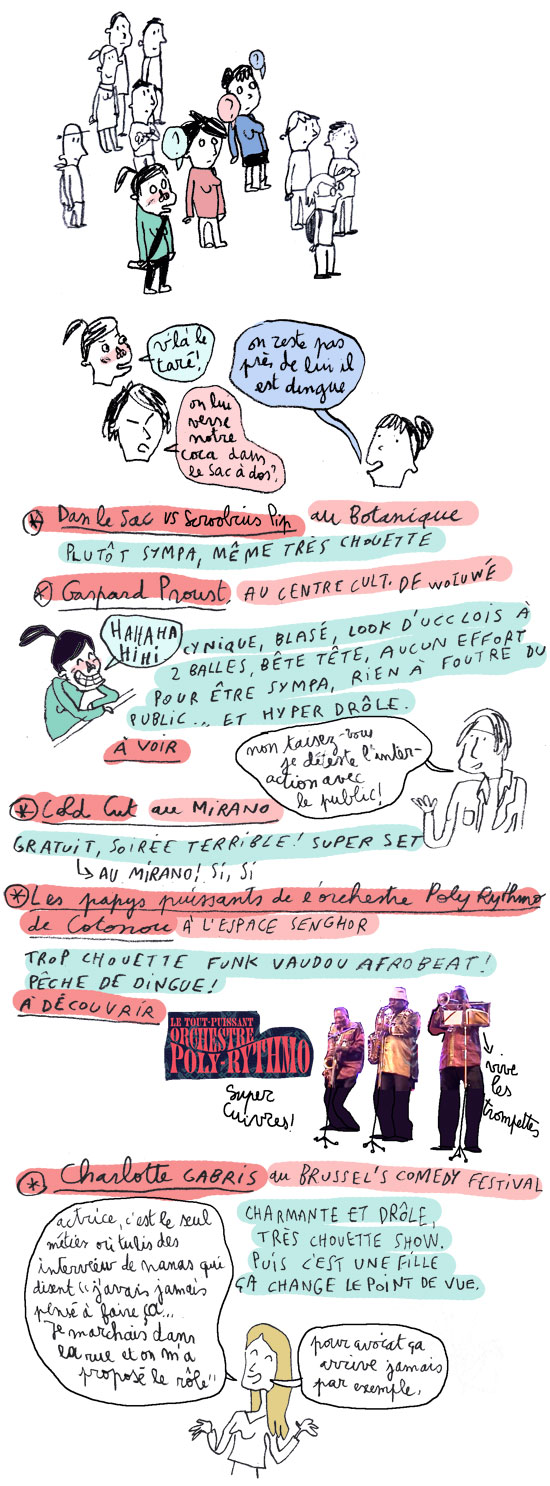 !
?
?
v'là le
taré!
on reste pas
près de lui il
est dingue
on lui
verse
notre
coca dans
le sac à dos?
* Dan le Sac vs Scroobius Pip au Botanique
PLUTÔT SYMPA, MÊME TRÈS CHOUETTE
* Gaspard Proust AU CENTRE CULT. DE WOLUWÉ
HAHAHA
HiHi
CYNIQUE, BLASÉ, LOOK D'UCCLOIS À
2 BALLES, BÊTE TÊTE, AUCUN EFFORT
POUR ÊTRE SYMPA, RIEN À FOUTRE DU
PUBLIC... ET HYPER DRÔLE.
À VOIR
non taisez-vous
je déteste l'inter-
action avec
le public!
* Cold Cut au MiRANO
GRATUIT, SOIRÉE TERRIBLE! SUPER SET
↳ AU MIRANO! Si, Si
* Les papys puissants de l'orchestre Poly Rythmo
de Cotonou À L'ESPACE SENGHOR
TROP CHOUETTE FUNK VAUDOU AFROBEAT!
PÊCHE DE DINGUE!
À DÉCOUVRIR
LE TOUT-PUISSANT
ORCHESTRE
POLY-RYTHMO
Super
Cuivres!
vive
les
trompettes
* Charlotte GABRIS au BRUSSEL'S COMEDY FESTIVAL
actrice, c'est le seul
métier où tu lis des
interviews de nanas qui
disent "j'avais jamais
pensé à faire ça...
Je marchais dans
la rue et on m'a
proposé le rôle"
CHARMANTE ET DRÔLE,
TRÈS CHOUETTE SHOW.
PUIS C'EST UNE FILLE
ÇA CHANGE LE POINT DE VUE.
pour avocat ça
arrive jamais
par exemple.